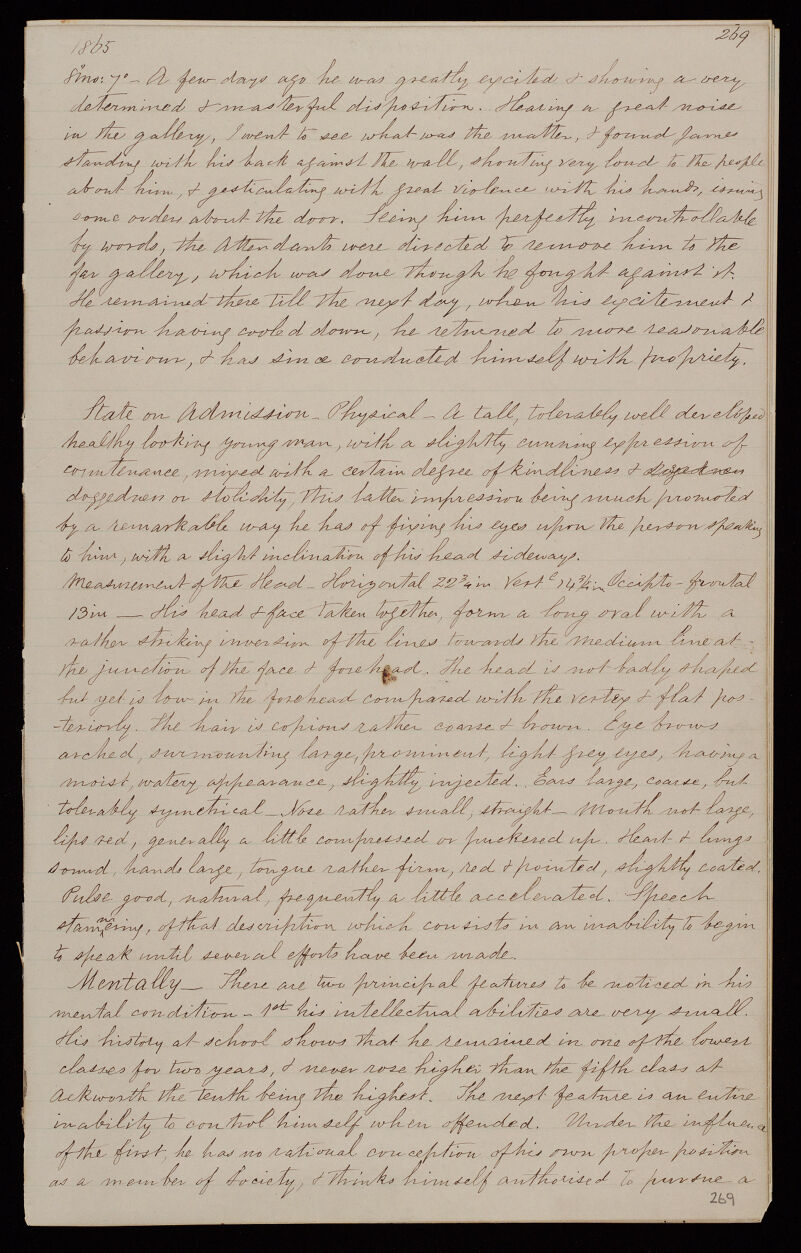 269
1865
8mo: 7º – A few days ago he was greatly excited & showing a very
determined & masterful disposition. Hearing a great noise
in the gallery, I went to see what was the matter, & found James
standing with his back against the wall, shouting very loud to the people
about him, & gesticulating with great violence with his hands, issuing
some orders about the door. Seeing him perfectly incontrollable
by words, the Attendants were directed to remove him to the
far gallery, which was done though he fought against it.
He remained there till the next day, when his excitement &
passion having cooled down, he returned to more reasonable
behaviour, & has since conducted himself with propriety.
State on Admission – Physical – A tall, tolerably well developed
healthy looking young man, with a slightly cunning expression of
countenance, mixed with a certain degree of kindliness &
doggedness or stolidity, this latter impression being much promoted
by a remarkable way he has of fixing his eyes upon the person speaking
to him, with a slight inclination of his head sideways.
Measurement of the Head – Horizontal 22¾ in Vert^l 14¾ in Occipito-frontal
13 in — His head & face taken together, form a long oval with a
rather striking inversion of the lines towards the medium line at
the junction of the face & forehead. The head is not badly shaped
but yet is low in the forehead compared with the vertex & flat pos-
-teriorly. The hair is copious rather coarse & brown. Eye brows
arched, surmounting large, prominent, light grey eyes, having a
moist, watery appearance, slightly injected. Ears large, coarse, but
tolerably symetrical – Nose rather small, straight – Mouth not large,
lips red, generally a little compressed or puckered up. Heart & lungs
sound, hands large, tongue rather firm, red & pointed, slightly coated.
Pulse good, natural, frequently a little accelerated. Speech
stammering, of that description which consists in an inability to begin
to speak until several efforts have been made.
Mentally – There are two principal features to be noticed in his
mental condition – 1st his intellectual abilities are very small.
His history at school shows that he remained in one of the lowest
classes for two years, & never rose higher than the fifth class at
Ackworth the tenth being the highest. The next feature is an entire
inability to control himself when offended. Under the influence
of the first, he has no rational conception of his own proper position
as a member of Society, & thinks himself authorised to pursue a
269